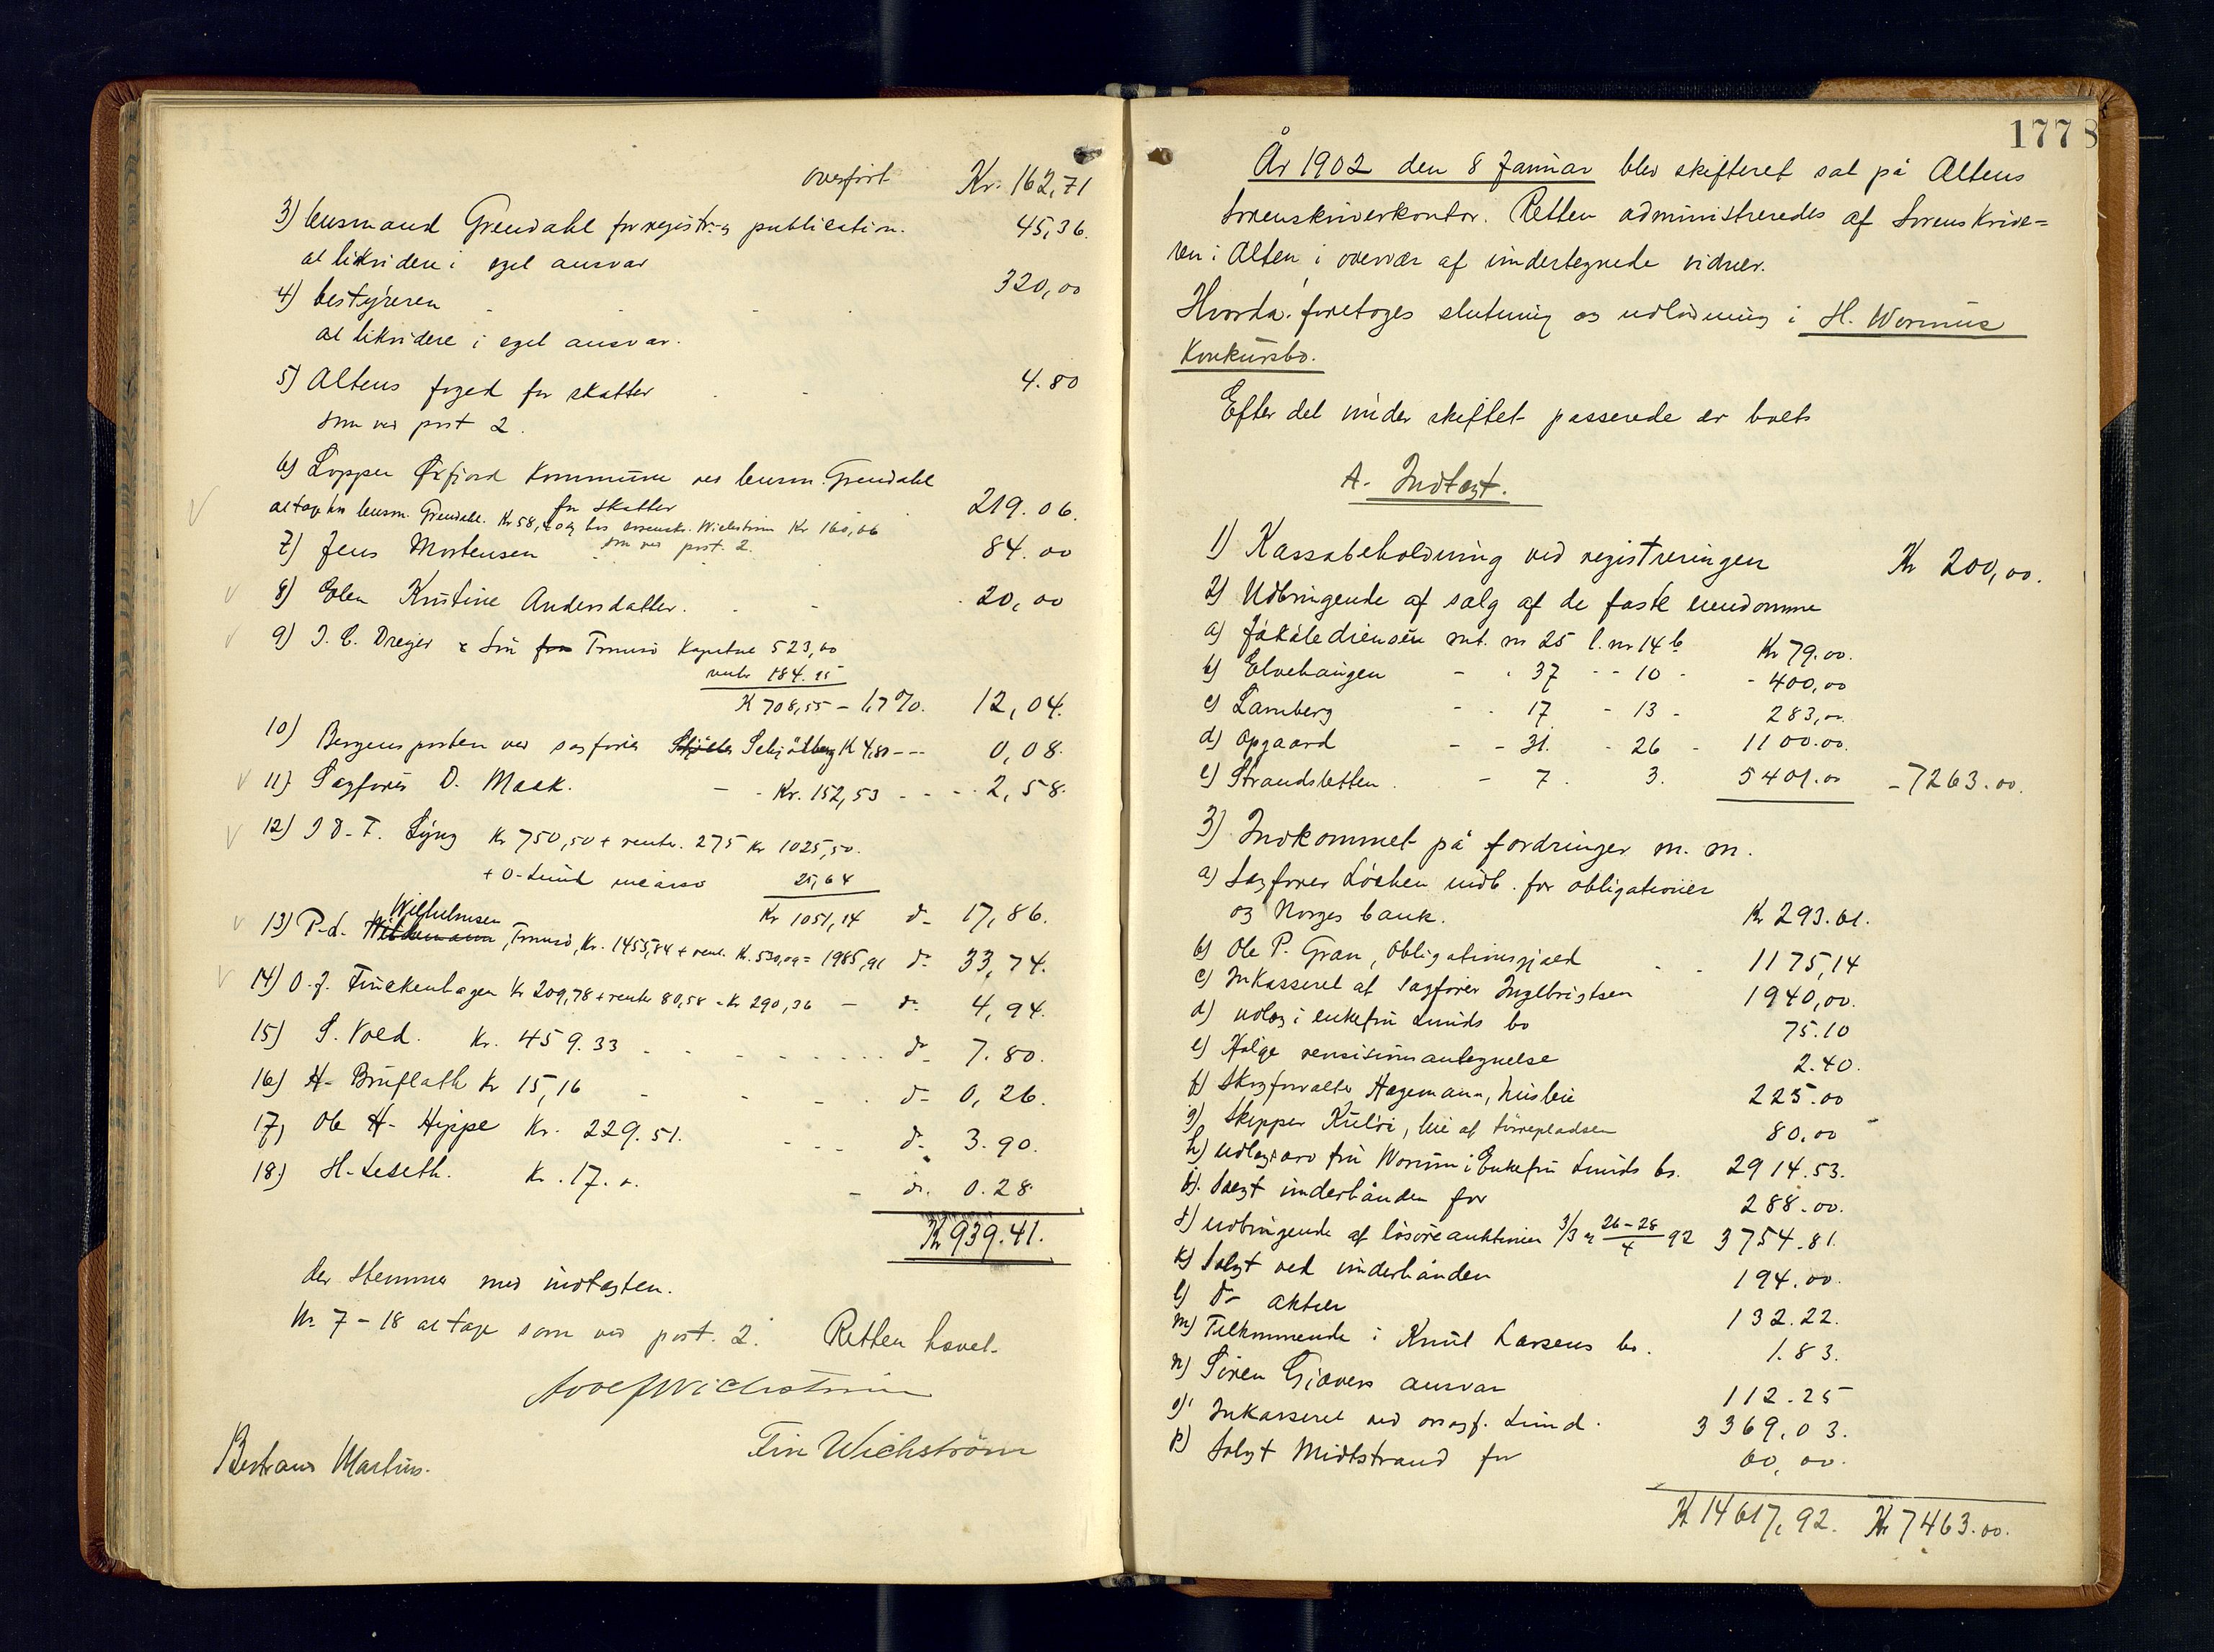 overført Kr. 162,71
3) lensmand Grendahl for registr. og publication. 45,36.
at likvidere i eget ansvar
4) bestyreren 320,00
at likvidere i eget ansvar.
5) Altens foged for skatter 4.80
som ved post 2.
6) Loppen Øxfjord Kommune ved lensm. Grendahl
for skatter 219.06.
at tage hos lensm. Grendahl. Kr 58, og hos sorenskr. Wichstrøm Kr 160,06
som ved post. 2.
7) Jens Mortensen 84.00
8) Elen Kristine Andersdatter. 20,00
9) I. C. Dreyer & Søn fra Tromsø Kapital 523,00
renter 184.55
K 708,55 - 1,7%. 12,04.
10) Bergensposten ved sagfører Schjølberg K 4,80 --- 0,08.
11) Sagfører D. Maak. - - Kr. 152,53 - - - - 2,58.
12) I D. T. Lyng Kr 750,50 + renter. 275 Kr 1025,50.
+ O. Lund 25,64
Kr 1051,14 do 17,86.
Wilhelmsen
13) P. d. Tromsø, Kr. 1455,84 + rent. Kr. 530,09 = 1985,91 do 33,74.
14) O. J. Finckenhagen Kr 209,78 + renter 80,58 = Kr 290,36 - do 4,94.
15) S. Vold. Kr. 459.33 do 7.80.
16) H. Bruflath Kr 15,16 do 0,26.
17) Ole H. Hippe Kr. 229.51. do 3.90.
18) H. Leseth. Kr. 17. do 0.28
Kr 939.41.
der stemmer med indtægten.
Nr 7 - 18 at tage som ved post. 2. Retten hævet.
Adolf Wichstrøm
Fin Wichström
Bertrans Martins.
177 8
År 1902 den 8 Januar blev skifteret sat på Altens
Sorenskriverkontor. Retten administreredes af Sorenskrive=
ren i Alten i overvær af undertegnede vidner.
Hvorda. foretoges slutning og udlodning i H. Worums
Konkursbo.
Efter det under skiftet passerede er boets
A. Indtægt.
1) Kassabeholdning ved registreringen Kr 200,00.
2) Udbringende af salg af de faste eiendomme
a) Jakalediensen mt. nr 25 l. nr 14 b Kr 79.00.
b) Elvebaugen - - 37 - - 10 - - 400,00
c) Lamberg - - 17 - 13 - 283,00.
d) Opgaard - - 31. - 26 - 1100.00.
e) Strandsletten - 7. 3. 5401.00 - 7263.00.
3) Indkommet på fordringer m. m.
a) Sagfører Løchen indb. for obligationer
og Norges bank. Kr 293.61.
b) Ole P. Gran, obligationsgjæld - - 1175,14
c) Inkasseret af sagfører Ingebrigtsen 1940,00.
d) udlæg i enkefru Lunds bo 75.10
e) Ifølge revisionsantegnelse 2.40.
f) Skogforvalter Hagemann, husleie 225.00
g) Skipper Kulvi, leie af tørrepladsen 80,00
h) udlagt arv fru Worum i Enkefru Lunds bo. 2914.53.
i). Solgt underhånden for 288.00.
j) udbringende af løsøreauktioner 3/3 og 26-28/4 92 3754.81.
k) Solgt ved underhånden 194.00.
l) do aktier 132.22.
m) Tilkommende i Knut Larsens bo. 1.83.
n) Søren Giævers ansvar 112.25
o) Inkasseret ved orsagf. Lund. 3369,03.
p) Solgt Midtstrand for 60,00.
Kr 14617,92. Kr 7463.00.